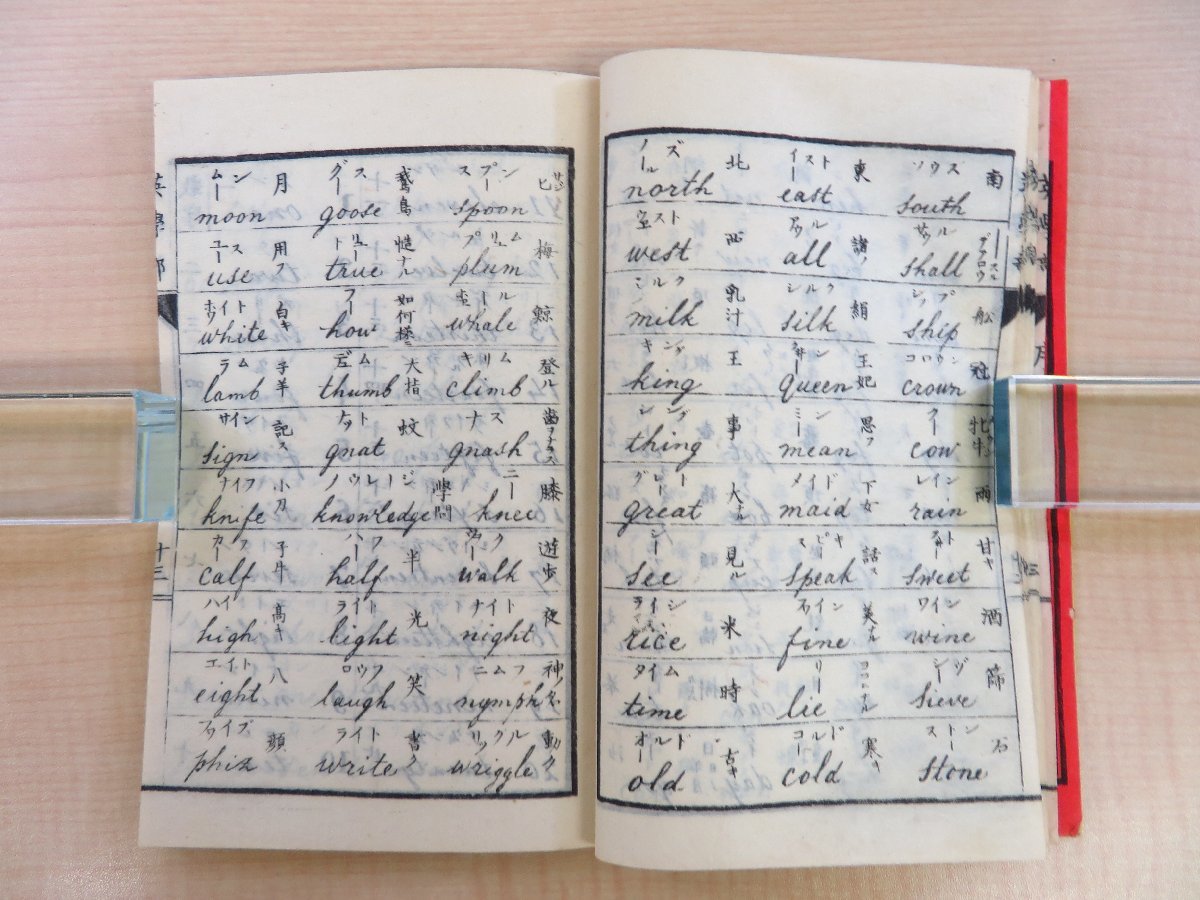 ノールズ 北 イースト 東 ソウス 南
north east south
ウエスト 西 アウル 諸ノ サウル
west all shall
ミルク 乳汁 シルク 絹 シップ 舩
milk silk ship
キング 王 王妃 コロウン 冠
king queen crown
シング 事 ミーン 思フ クー 牝牛
thing mean cow
グレート 大ナル メイド 下女 レイン 雨
great maid rain
シー 見ル スピーキ 話ス 甘キ
see speak sweet
ライシ 米 ファイン 美ナル ワイン 酒
rice fine wine
タイム 時 リー シーヴ 篩
time lie sieve
オールド 古キ コールド 寒キ ストーン 石
old cold stone
ムーン 月 グース 鵞鳥 スプーン 匕
moon goose spoon
ユース 用フ トリュー 慥ナル プリュム 梅
use true plum
ホワイト 白キ フー 如何様ニ ホール 鯨
white how whale
ラム 子羊 デュム 大指 キリム 登ル
lamb thumb climb
サイン 記ス ナット 蚊 ナス
sign gnat gnash
ナイフ 小刀 ノウレージ 學問 ニー 膝
knife knowledge knee
カーフ 子牛 ハーフ 半 遊歩
calf half walk
ハイ 高キ ライト 光 ナイト 夜
high light night
エイト 八 ロウフ 笑 ニムフ
eight laugh nymph
ファイズ 顔 ライト 書ク リッグル 動ク
phiz write wriggle
英學部
十三